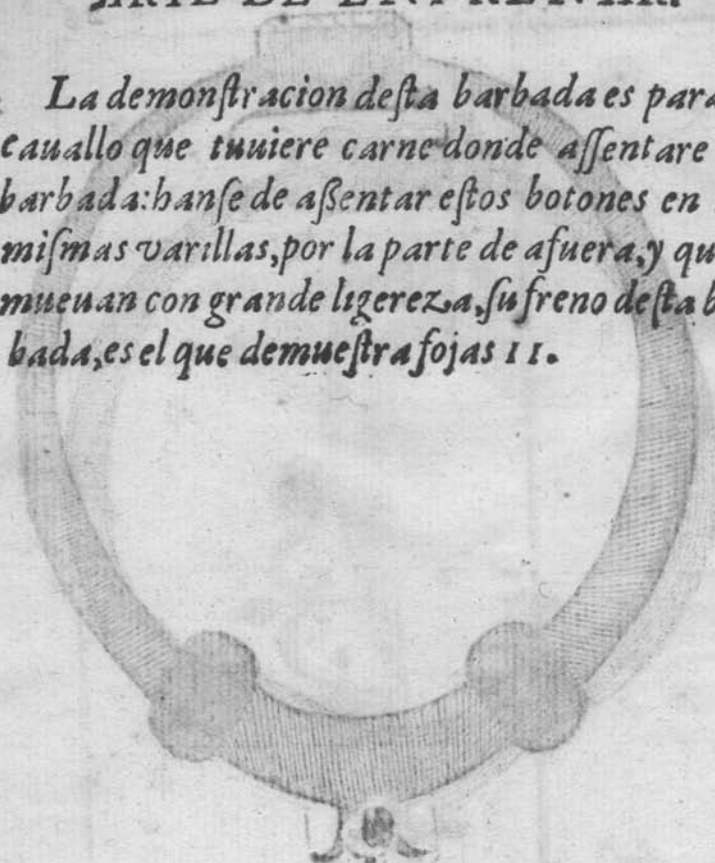 ARTE DE ENFRENAR.
La demonſtracion deſta barbada es para
cauallo que tuuiere carne donde aſſentare
barbada: hanſe de aſſentar eſtos botones en
miſmas varillas, por la parte de afuera, y qu
mueuan con grande ligereza, ſu freno deſta b
bada, es el que demueſtra fojas 11.